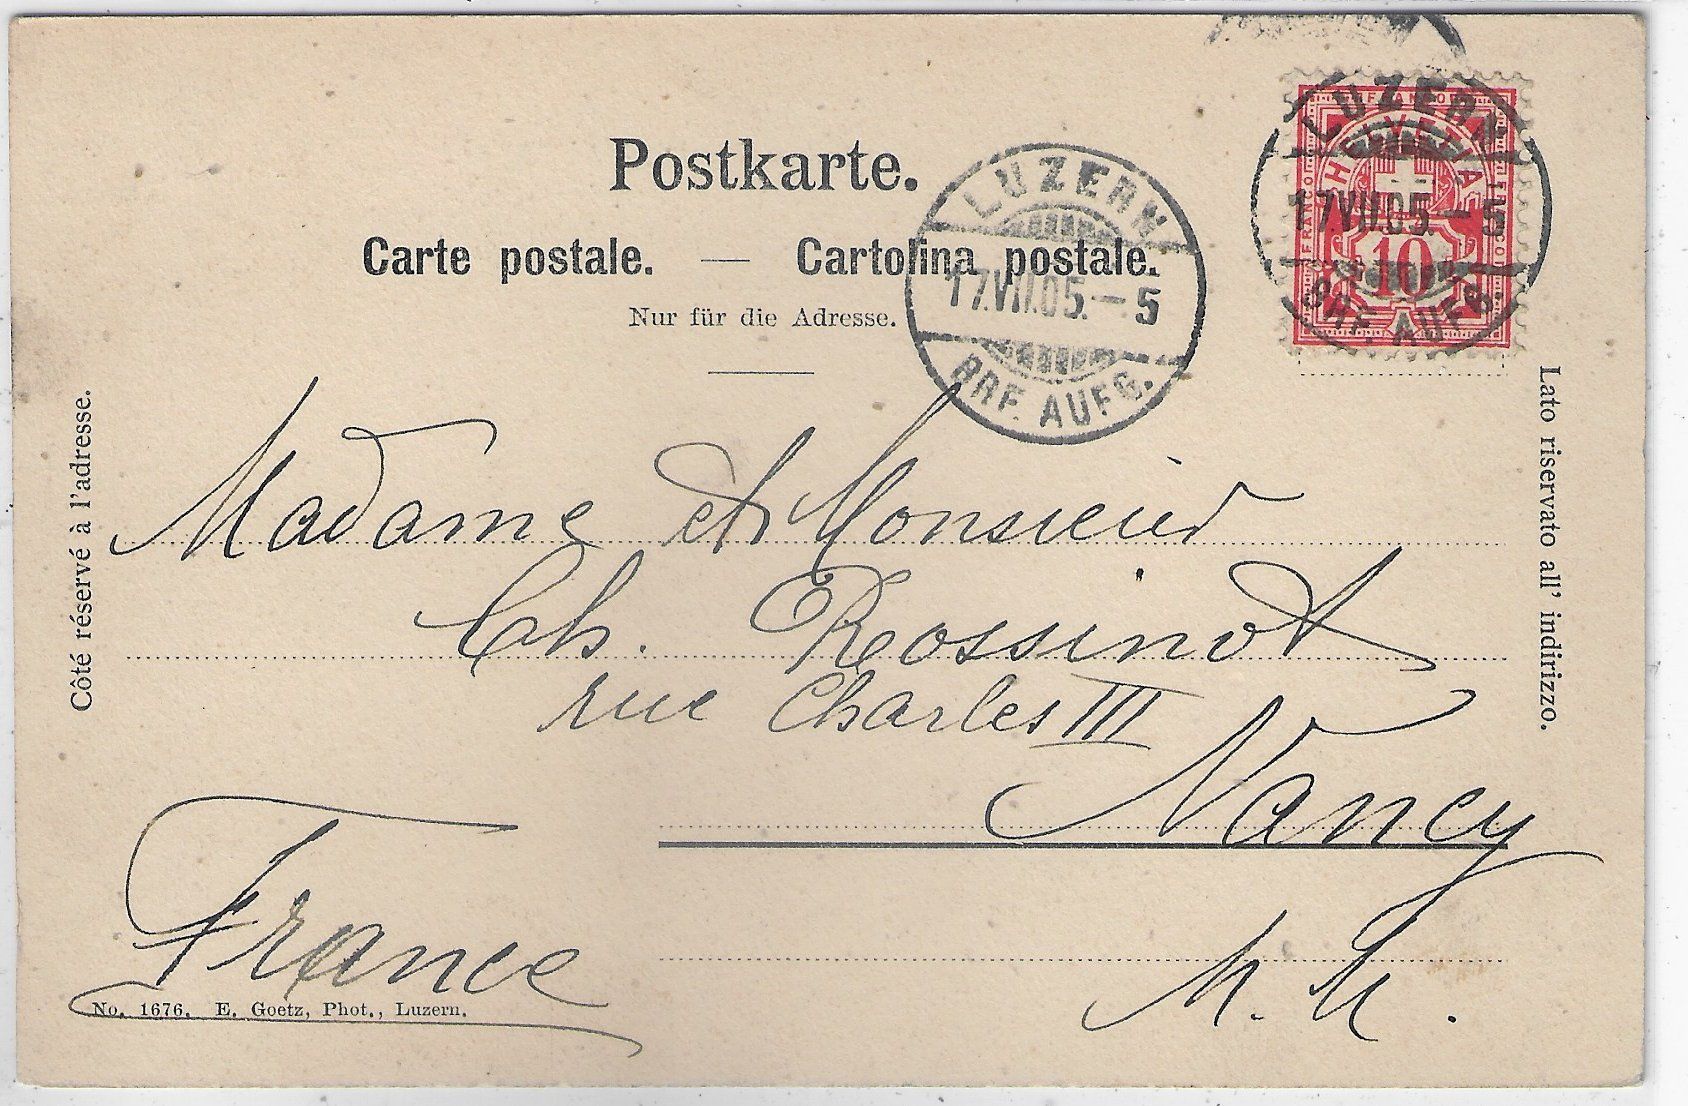 Postkarte.
Carte postale. — Cartolina postale.
Nur für die Adresse.
LUZERN
17.VII.05.–5
BRF. AUFG.
LUZERN
17.VII.05.–5
BRF. AUFG.
FRANCO
HELVETIA
FRANCO
10
Côté réservé à l'adresse.
Lato riservato all' indirizzo.
Madame et Monsieur
Ch. Rossinot
rue Charles III
Nancy
France
M. M.
No. 1676. E. Goetz, Phot., Luzern.